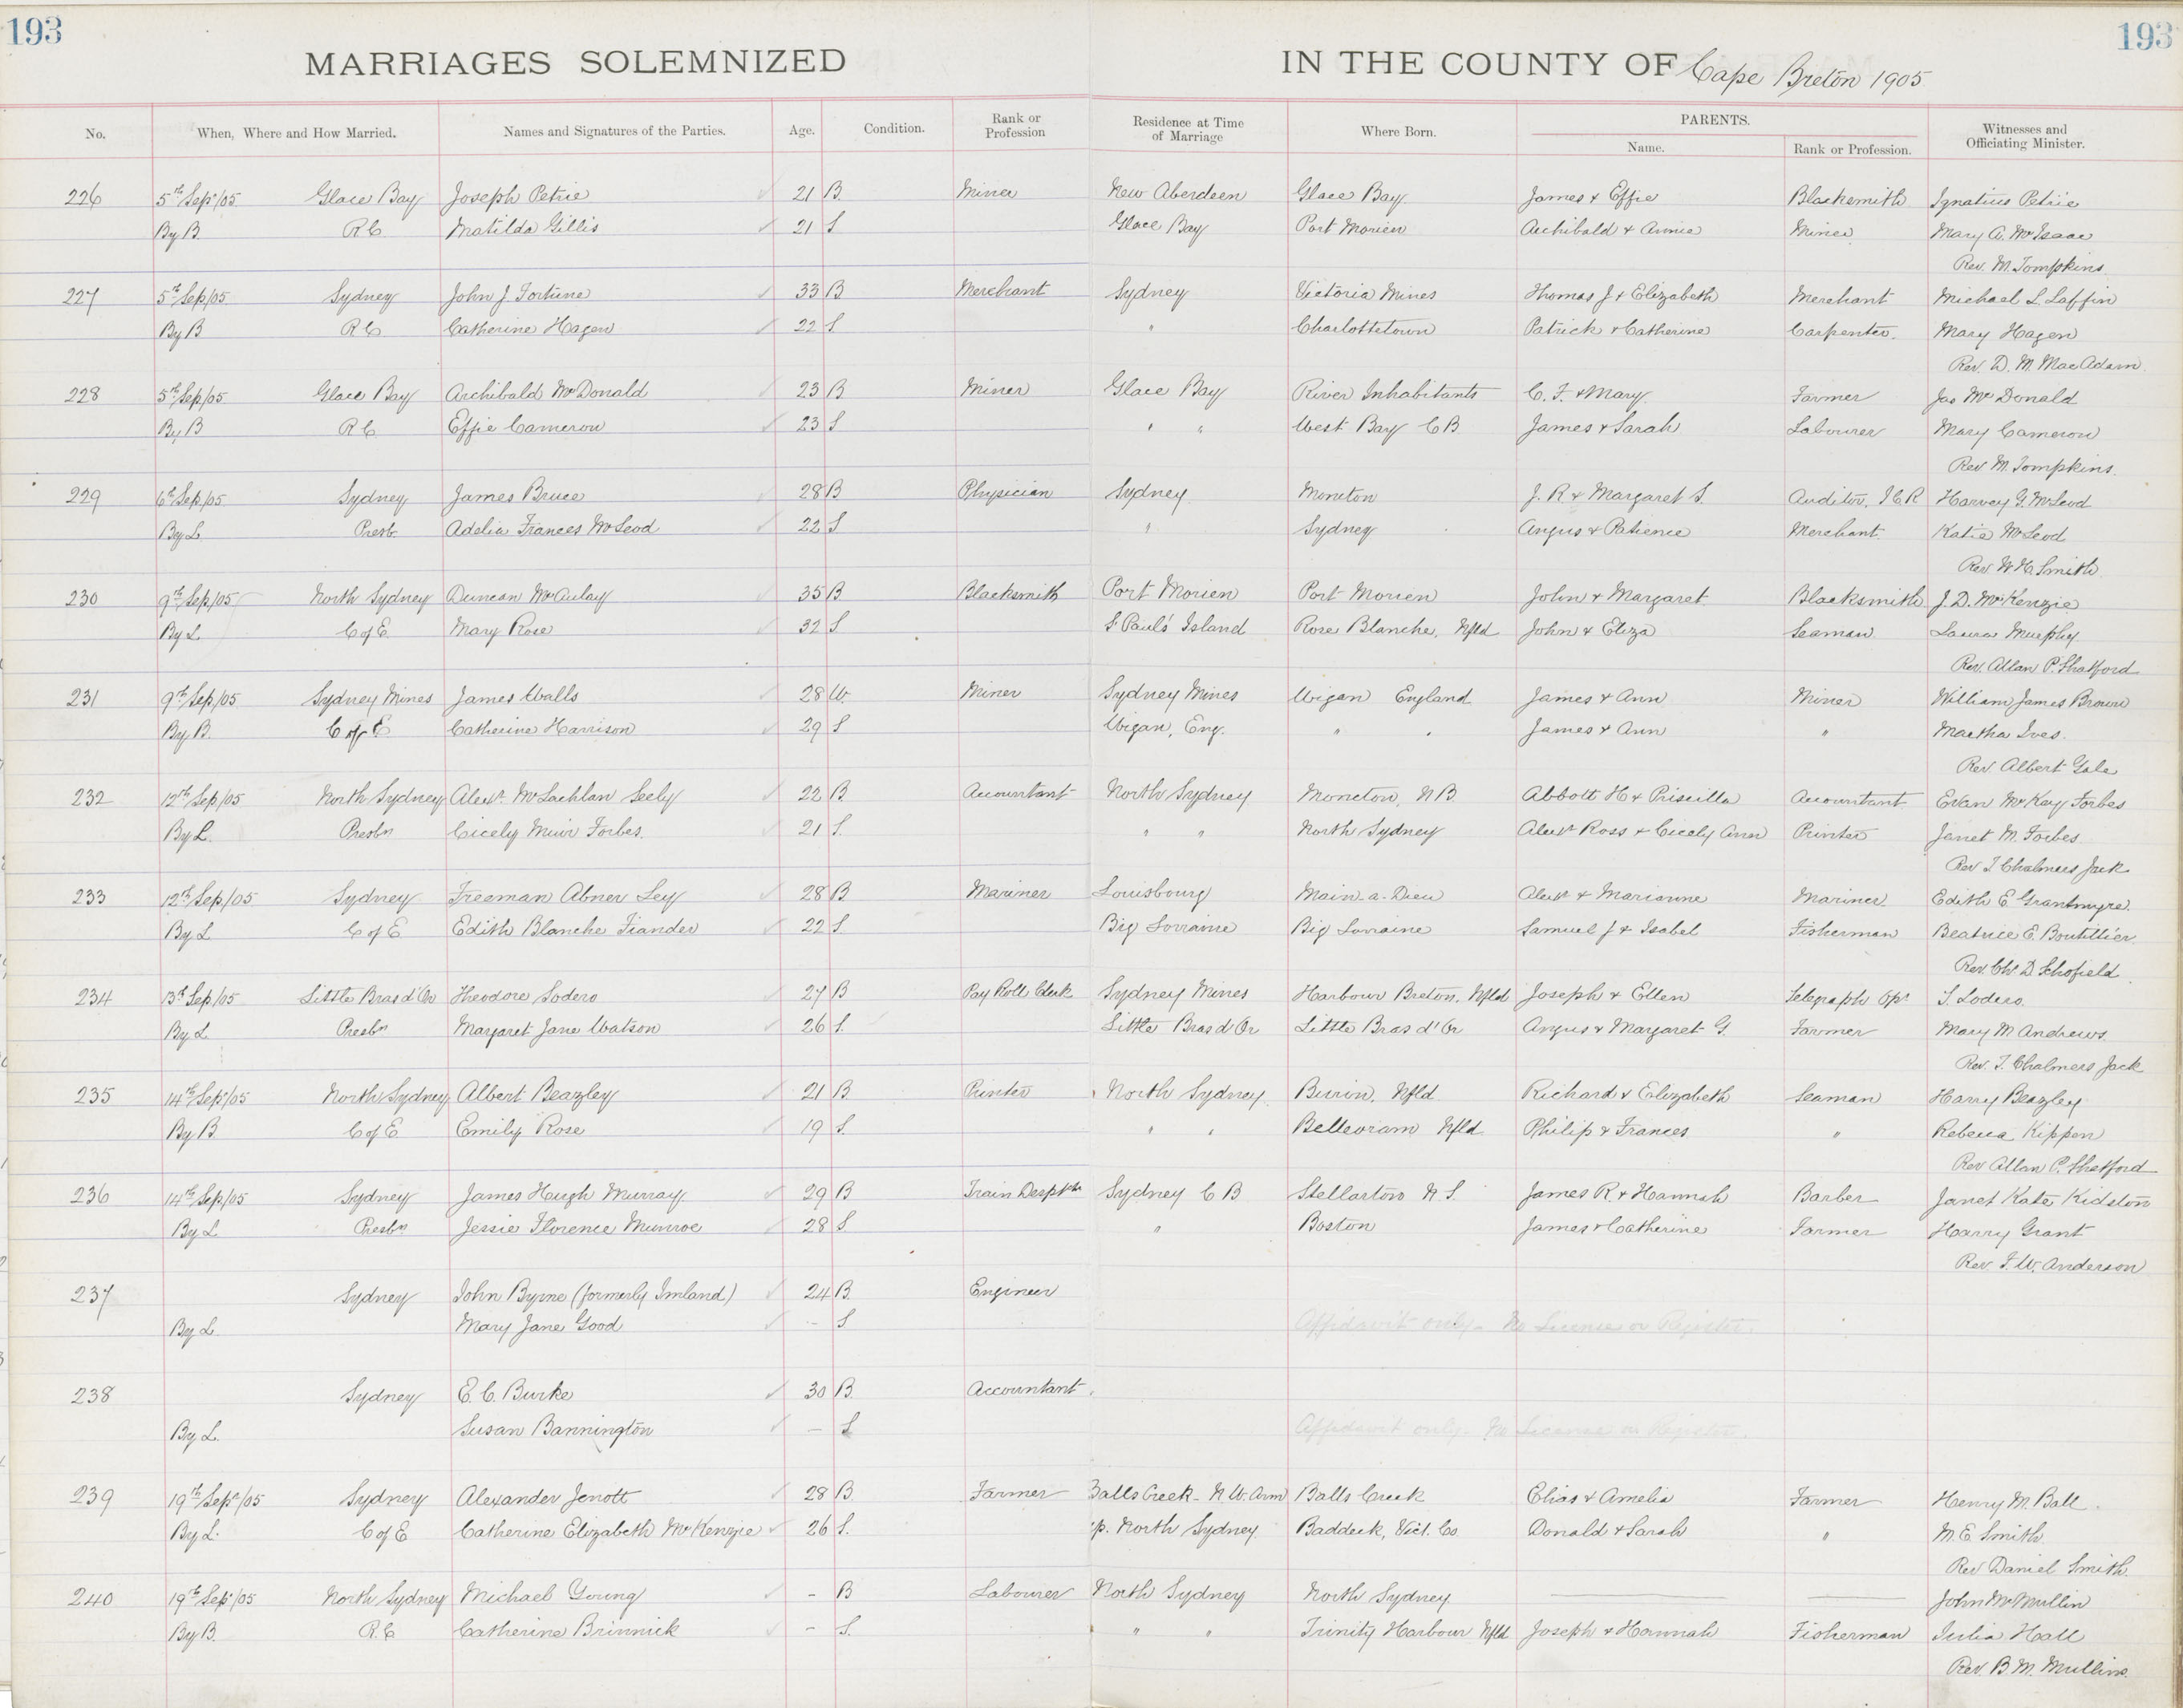 193 193
MARRIAGES SOLEMNIZED IN THE COUNTY OF Cape Breton 1905
No. When, Where and How Married. Names and Signatures of the Parties. Age. Condition. Rank or Profession Residence at Time of Marriage Where Born. PARENTS. Name. Rank or Profession. Witnesses and Officiating Minister.
226 5th Sep/05 Glace Bay Joseph Petrie 21 B. Miner New Aberdeen Glace Bay James & Effie Blacksmith Ignatius Petrie
By B. R C Matilda Gillis 21 S Glace Bay Port Morien Archibald & Annie Miner Mary A. McIsaac
Rev. M. Tompkins
227 5th Sep/05 Sydney John J Fortune 33 B Merchant Sydney Victoria Mines Thomas J & Elizabeth Merchant Michael L Laffin
By B R C Catherine Hagen 22 S " Charlottetown Patrick & Catherine Carpenter. Mary Hagen
Rev. D. M. MacAdam
228 5th Sep/05 Glace Bay Archibald McDonald 23 B Miner Glace Bay River Inhabitants C. F. & Mary Farmer Jas McDonald
By B R C Effie Cameron 23 S " " West Bay C B James & Sarah Labourer Mary Cameron
Rev M. Tompkins.
229 6th Sep/05 Sydney James Bruce 28 B Physician Sydney Moncton J. R & Margaret S. Auditor, I C R Harvey G. McLeod
By L. Presb. Adelia Frances McLeod 22 S " Sydney Angus & Patience Merchant. Katie McLeod
Rev W H Smith
230 9th Sep/05 North Sydney Duncan McAulay 35 B Blacksmith Port Morien Port Morien John & Margaret Blacksmith J. D. McKenzie
By L C of E. Mary Rose 32 S St Paul's Island Rose Blanche, Nfld John & Eliza Seaman Laura Murphy
Rev. Allan P. Shatford
231 9th Sep/05 Sydney Mines James Walls 28 W. Miner Sydney Mines Wigan England James & Ann Miner William James Brown
By B. C of E Catherine Harrison 29 S Wigan, Eng. " " James & Ann " Martha Ives.
Rev. Albert Gale
232 12th Sep/05 North Sydney Alexr. McLachlan Seely 22 B. Accountant North Sydney Moncton, N B. Abbott H & Priscilla Accountant Evan McKay Forbes
By L. Presbn Cicely Muir Forbes. 21 S. " " North Sydney Alexr Ross & Cicely Ann Printer Janet M. Forbes
Rev T Chalmers Jack
233 12th Sep/05 Sydney Freeman Abner Ley 28 B Mariner Louisbourg Main-a-Dieu Alexr & Marianne Mariner. Edith E Grantmyre.
By L C of E Edith Blanche Fiander 22 S. Big Lorraine Big Lorraine Samuel J & Isabel Fisherman Beatrice E. Boutillier.
Rev. Chs D Schofield.
234 13th Sep/05 Little Bras d'Or Theodore Sodero 27 B Pay Roll Clerk Sydney Mines Harbour Breton, Nfld Joseph & Ellen Telegraph Opr S. Sodero.
By L Presbn Margaret Jane Watson 26 S. Little Bras d'Or Little Bras d'Or Angus & Margaret G. Farmer Mary M Andrews.
Rev. T. Chalmers Jack
235 14th Sep/05 North Sydney Albert Beazley 21 B Printer North Sydney Burin, Nfld Richard & Elizabeth Seaman Harry Beazley
By B C of E Emily Rose 19 S. " " Belleoram Nfld Philip & Frances " Rebecca Kippen
Rev Allan P. Shatford
236 14th Sep/05 Sydney James Hugh Murray 29 B Train Desptchr Sydney C B Stellarton N S. James R & Hannah Barber Janet Kate Kidston
By L Presbn Jessie Florence Munroe 28 S " Boston James & Catherine Farmer Harry Grant
Rev. F. W. Anderson
237 Sydney John Byrne (formerly Imland) 24 B. Engineer
By L Mary Jane Good - S Affidavit only. No License or Register.
238 Sydney E. C. Burke 30 B. Accountant
By L. Susan Bannington - S Affidavit only. No License or Register.
239 19th Sep/05 Sydney Alexander Jenott 28 B Farmer Balls Creek - N. W. Arm Balls Creek Elias & Amelia Farmer Henry M. Ball.
By L. C of E Catherine Elizabeth McKenzie 26 S. p. North Sydney. Baddeck, Vict. Co. Donald & Sarah " M. E Smith.
Rev Daniel Smith.
240 19th Sep/05 North Sydney Michael Young - B Labourer North Sydney North Sydney John McMullin
By B. R. C Catherine Brinnick - S. " " Trinity Harbour Nfld Joseph & Hannah Fisherman Julia Hall
Rev B M. Mullins.